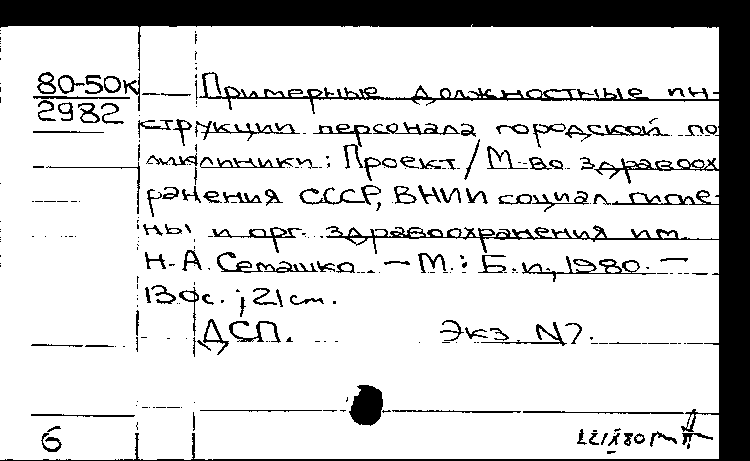 80-50к Примерные должностные ин-
2982
струкции персонала городской по
ликлиники: Проект/М-во здравоох
ранения СССР, ВНИИ социал. гигие-
ны и орг. здравоохранения им.
Н.А. Семашко. – М.: Б.и., 1980. –
130с.; 21см.
ДСП. Экз. N7.
6